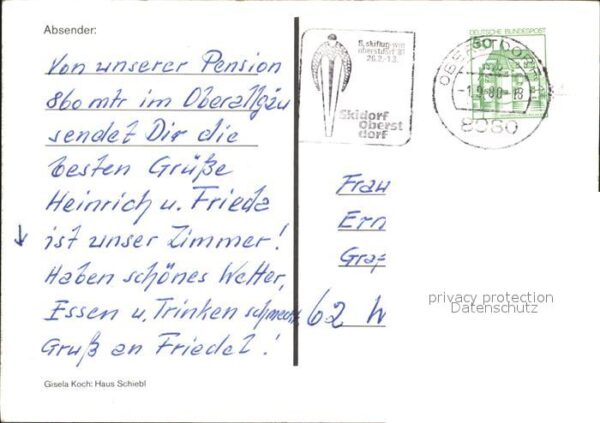 Absender:
Von unserer Pension
860 mtr im Oberallgäu
sendet Dir die
besten Grüße
Heinrich u. Frieda
ist unser Zimmer!
Haben schönes Wetter,
Essen u. Trinken schmeckt,
Gruß an Friedel!
Gisela Koch: Haus Schiebl
5. skiflug-wm
oberstdorf '81
26.2.-1.3.
Skidorf
Oberst
dorf
DEUTSCHE BUNDESPOST
50
OBERSTDORF
-1.9.80-18
8980
Frau
Ern
Graf
62 W
privacy protection
Datenschutz